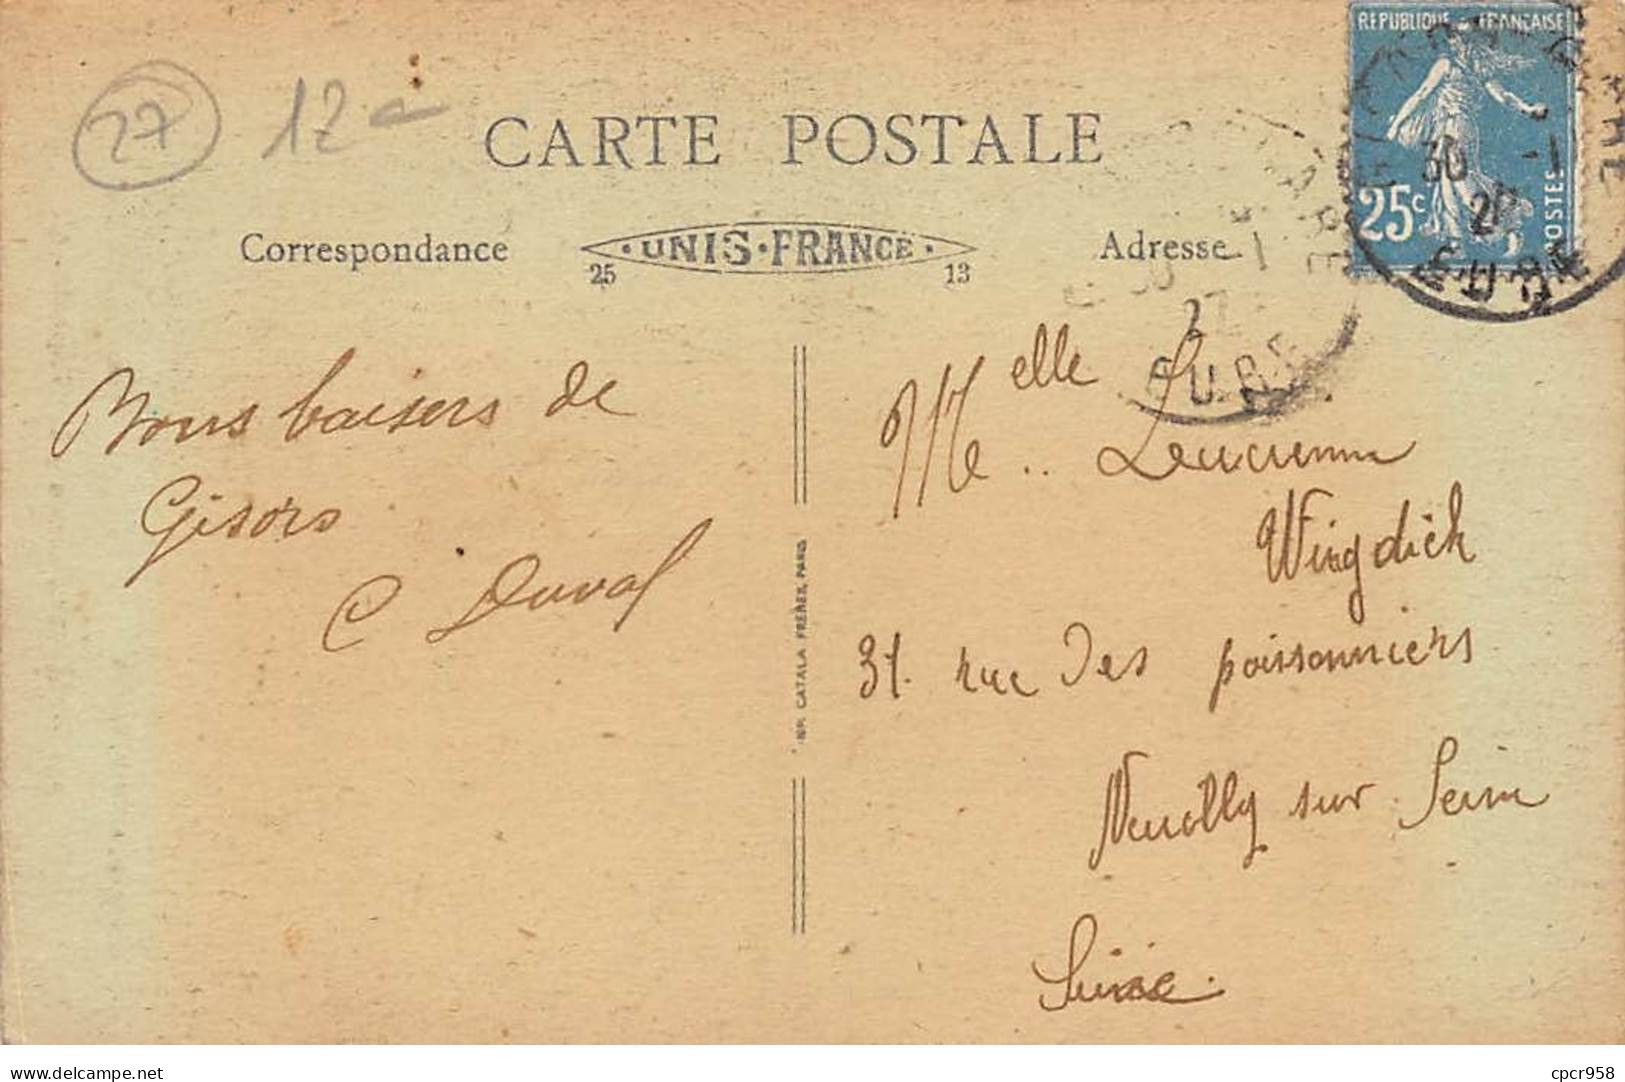 27 12
CARTE POSTALE
REPUBLIQUE FRANCAISE
25c
POSTES
30 -1
EURE
Correspondance
UNIS·FRANCE
25 13
Adresse
Bons baisers de
Gisors
C Duval
IMP. CATALA FRÈRES, PARIS
Melle Lucienne
Wingdich
31. rue Des poissonniers
Neuilly sur Seine
Seine
delcampe.net
cpcr958